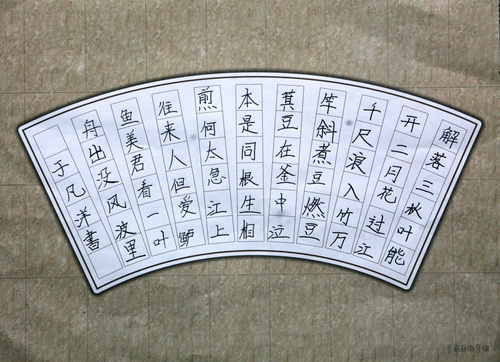 解落三秋叶能
开二月花过江
千尺浪入竹万
竿斜煮豆燃豆
萁豆在釜中泣
本是同根生相
煎何太急江上
往来人但爱鲈
鱼美君看一叶
舟出没风波里
于凡洋書